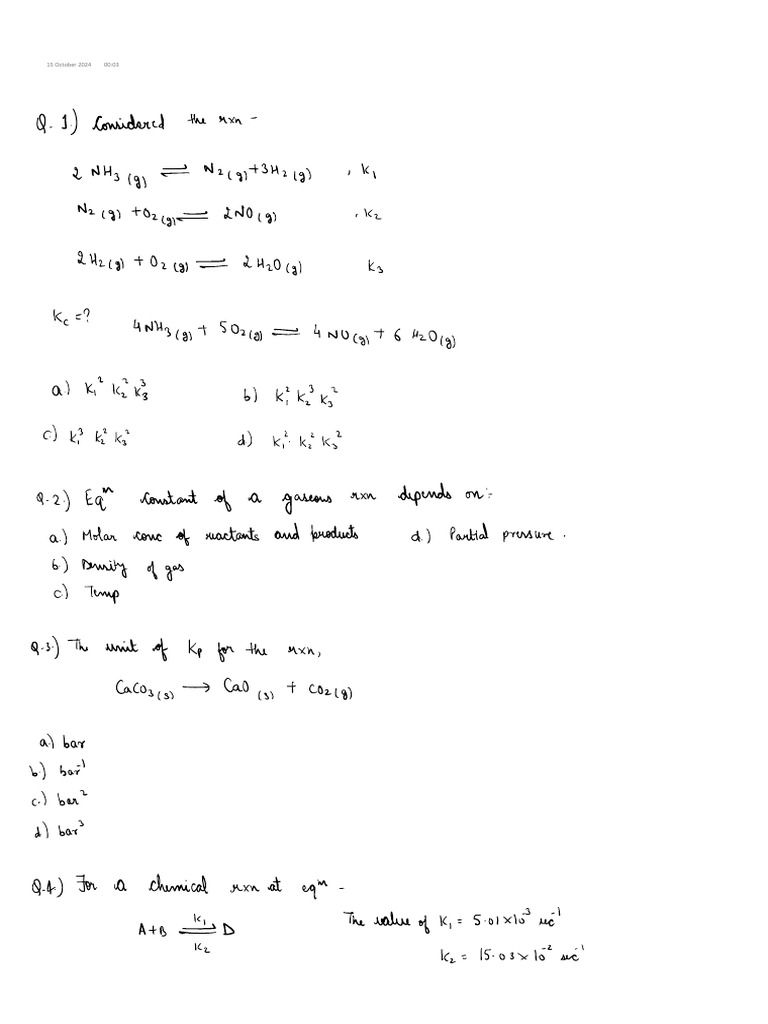 15 October 2024 00:03
Q. 1.) Considered the rxn -
2 NH3 (g) ⇌ N2 (g) + 3H2 (g) , K1
N2 (g) + O2 (g) ⇌ 2NO (g) , K2
2H2 (g) + O2 (g) ⇌ 2 H2O (g) K3
Kc = ? 4NH3 (g) + 5O2 (g) ⇌ 4 NO (g) + 6 H2O (g)
a) K1² K2² K3³ b) K1² K2³ K3²
c) K1³ K2² K3² d) K1². K2² K3²
Q.2.) Eqᵐ constant of a gaseous rxn depends on :-
a.) Molar conc of reactants and products d.) Partial pressure .
b.) Density of gas
c) Temp
Q.3.) Th unit of Kp for the rxn,
CaCO3 (s) → CaO (s) + CO2 (g)
a.) bar
b.) bar⁻¹
c.) bar²
d) bar³
Q.4.) For a chemical rxn at eqᵐ -
A+B ⇌ D The value of K1 = 5.01×10⁻³ sec⁻¹
K1
K2 K2 = 15.03×10⁻² sec⁻¹